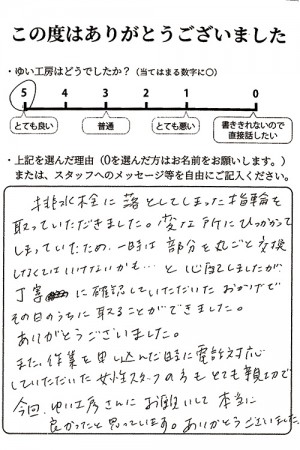 この度はありがとうございました
・ゆい工房はどうでしたか？（当てはまる数字に○）
5 4 3 2 1 0
とても良い 普通 とても悪い 書ききれないので直接話したい
・上記を選んだ理由（0を選んだ方はお名前をお願いします。）
または、スタッフへのメッセージ等を自由にご記入ください。
排水栓に落としてしまった指輪を
取っていただきました。変な所にひっかかって
しまっていたため、一時は部分を丸ごと交換
しなくてはいけないかも…と心配してましたが、
丁寧に確認していただいたおかげで
その日のうちに取ることができました。
ありがとうございました。
また、作業を申し込んだ時に電話対応
していただいた女性スタッフの方もとても親切で
今回、ゆい工房さんにお願いして本当に
良かったと思っています。ありがとうございました